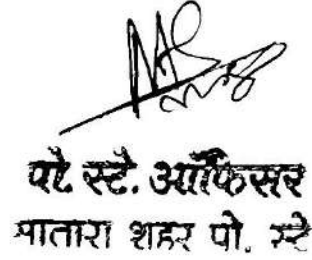 पो. स्टे. ऑफिसर
सातारा शहर पो. स्टे